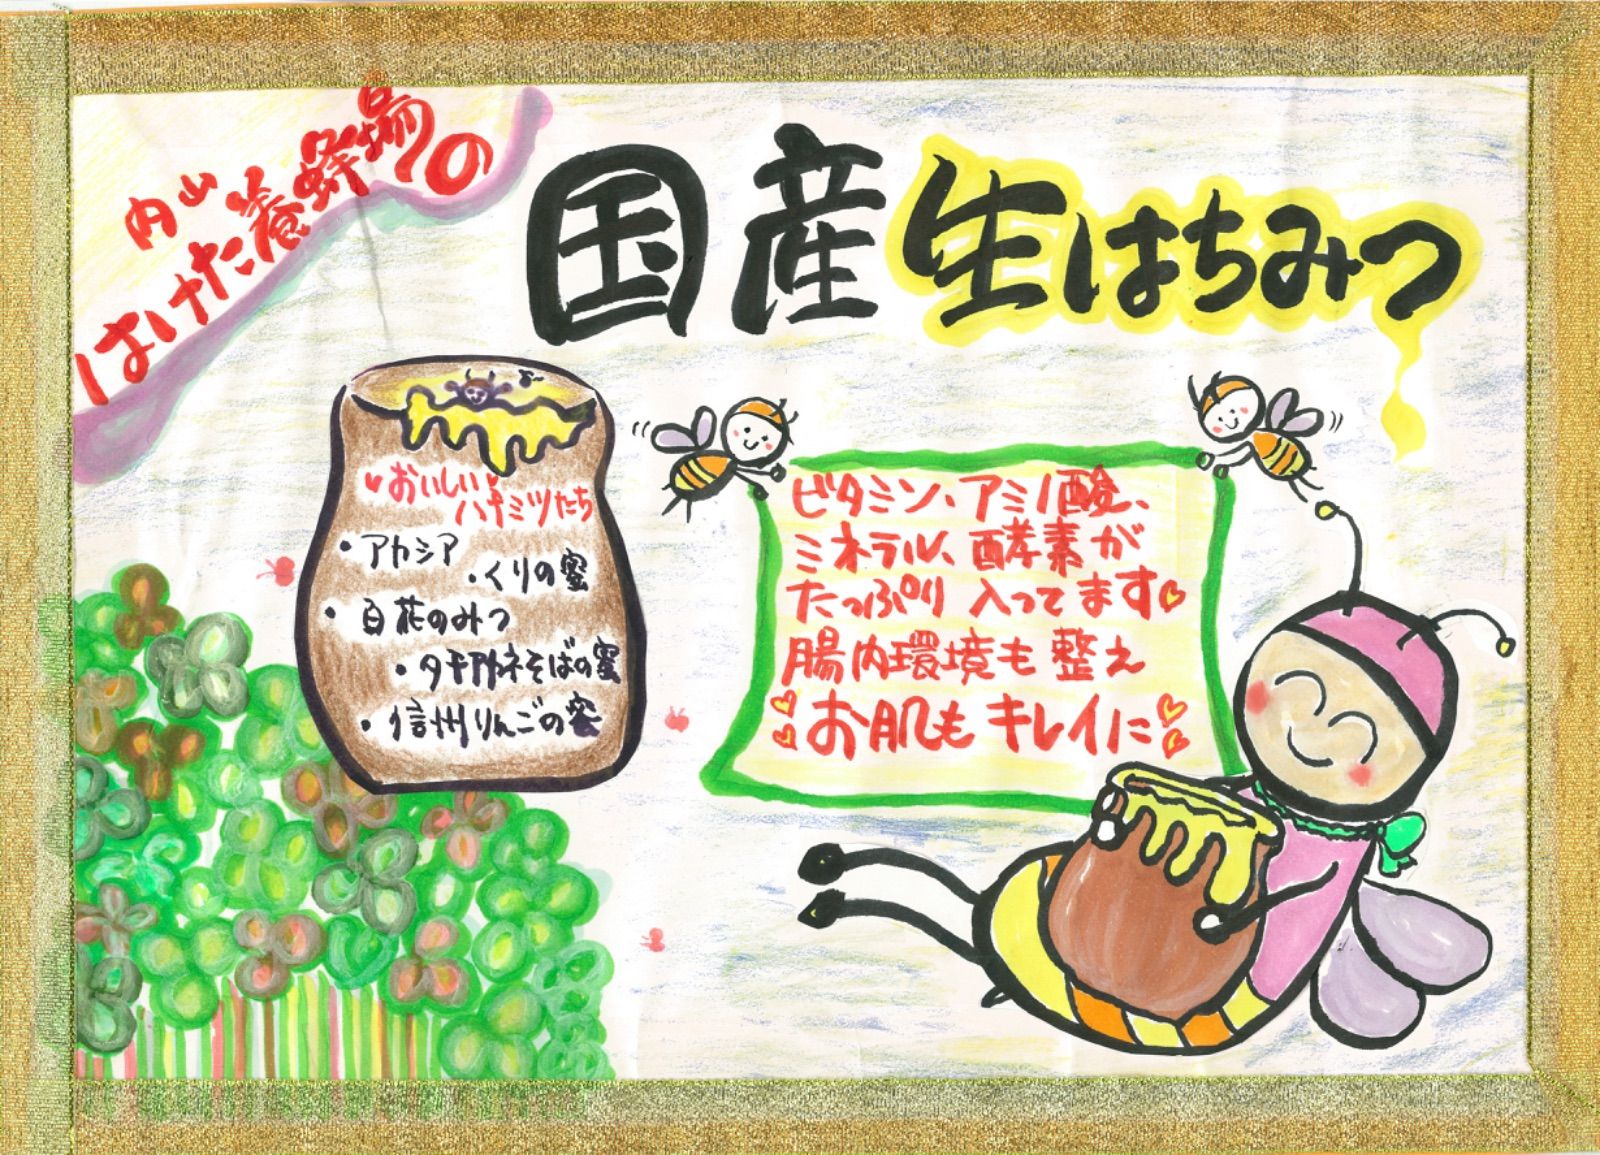 内山
はけた養蜂場の
国産生はちみつ
おいしい
ハチミツたち
・アカシア
・くりの蜜
・百花のみつ
・タチアカネそばの蜜
・信州りんごの蜜
ビタミン、アミノ酸、
ミネラル、酵素が
たっぷり入ってます
腸内環境も整え
お肌もキレイに